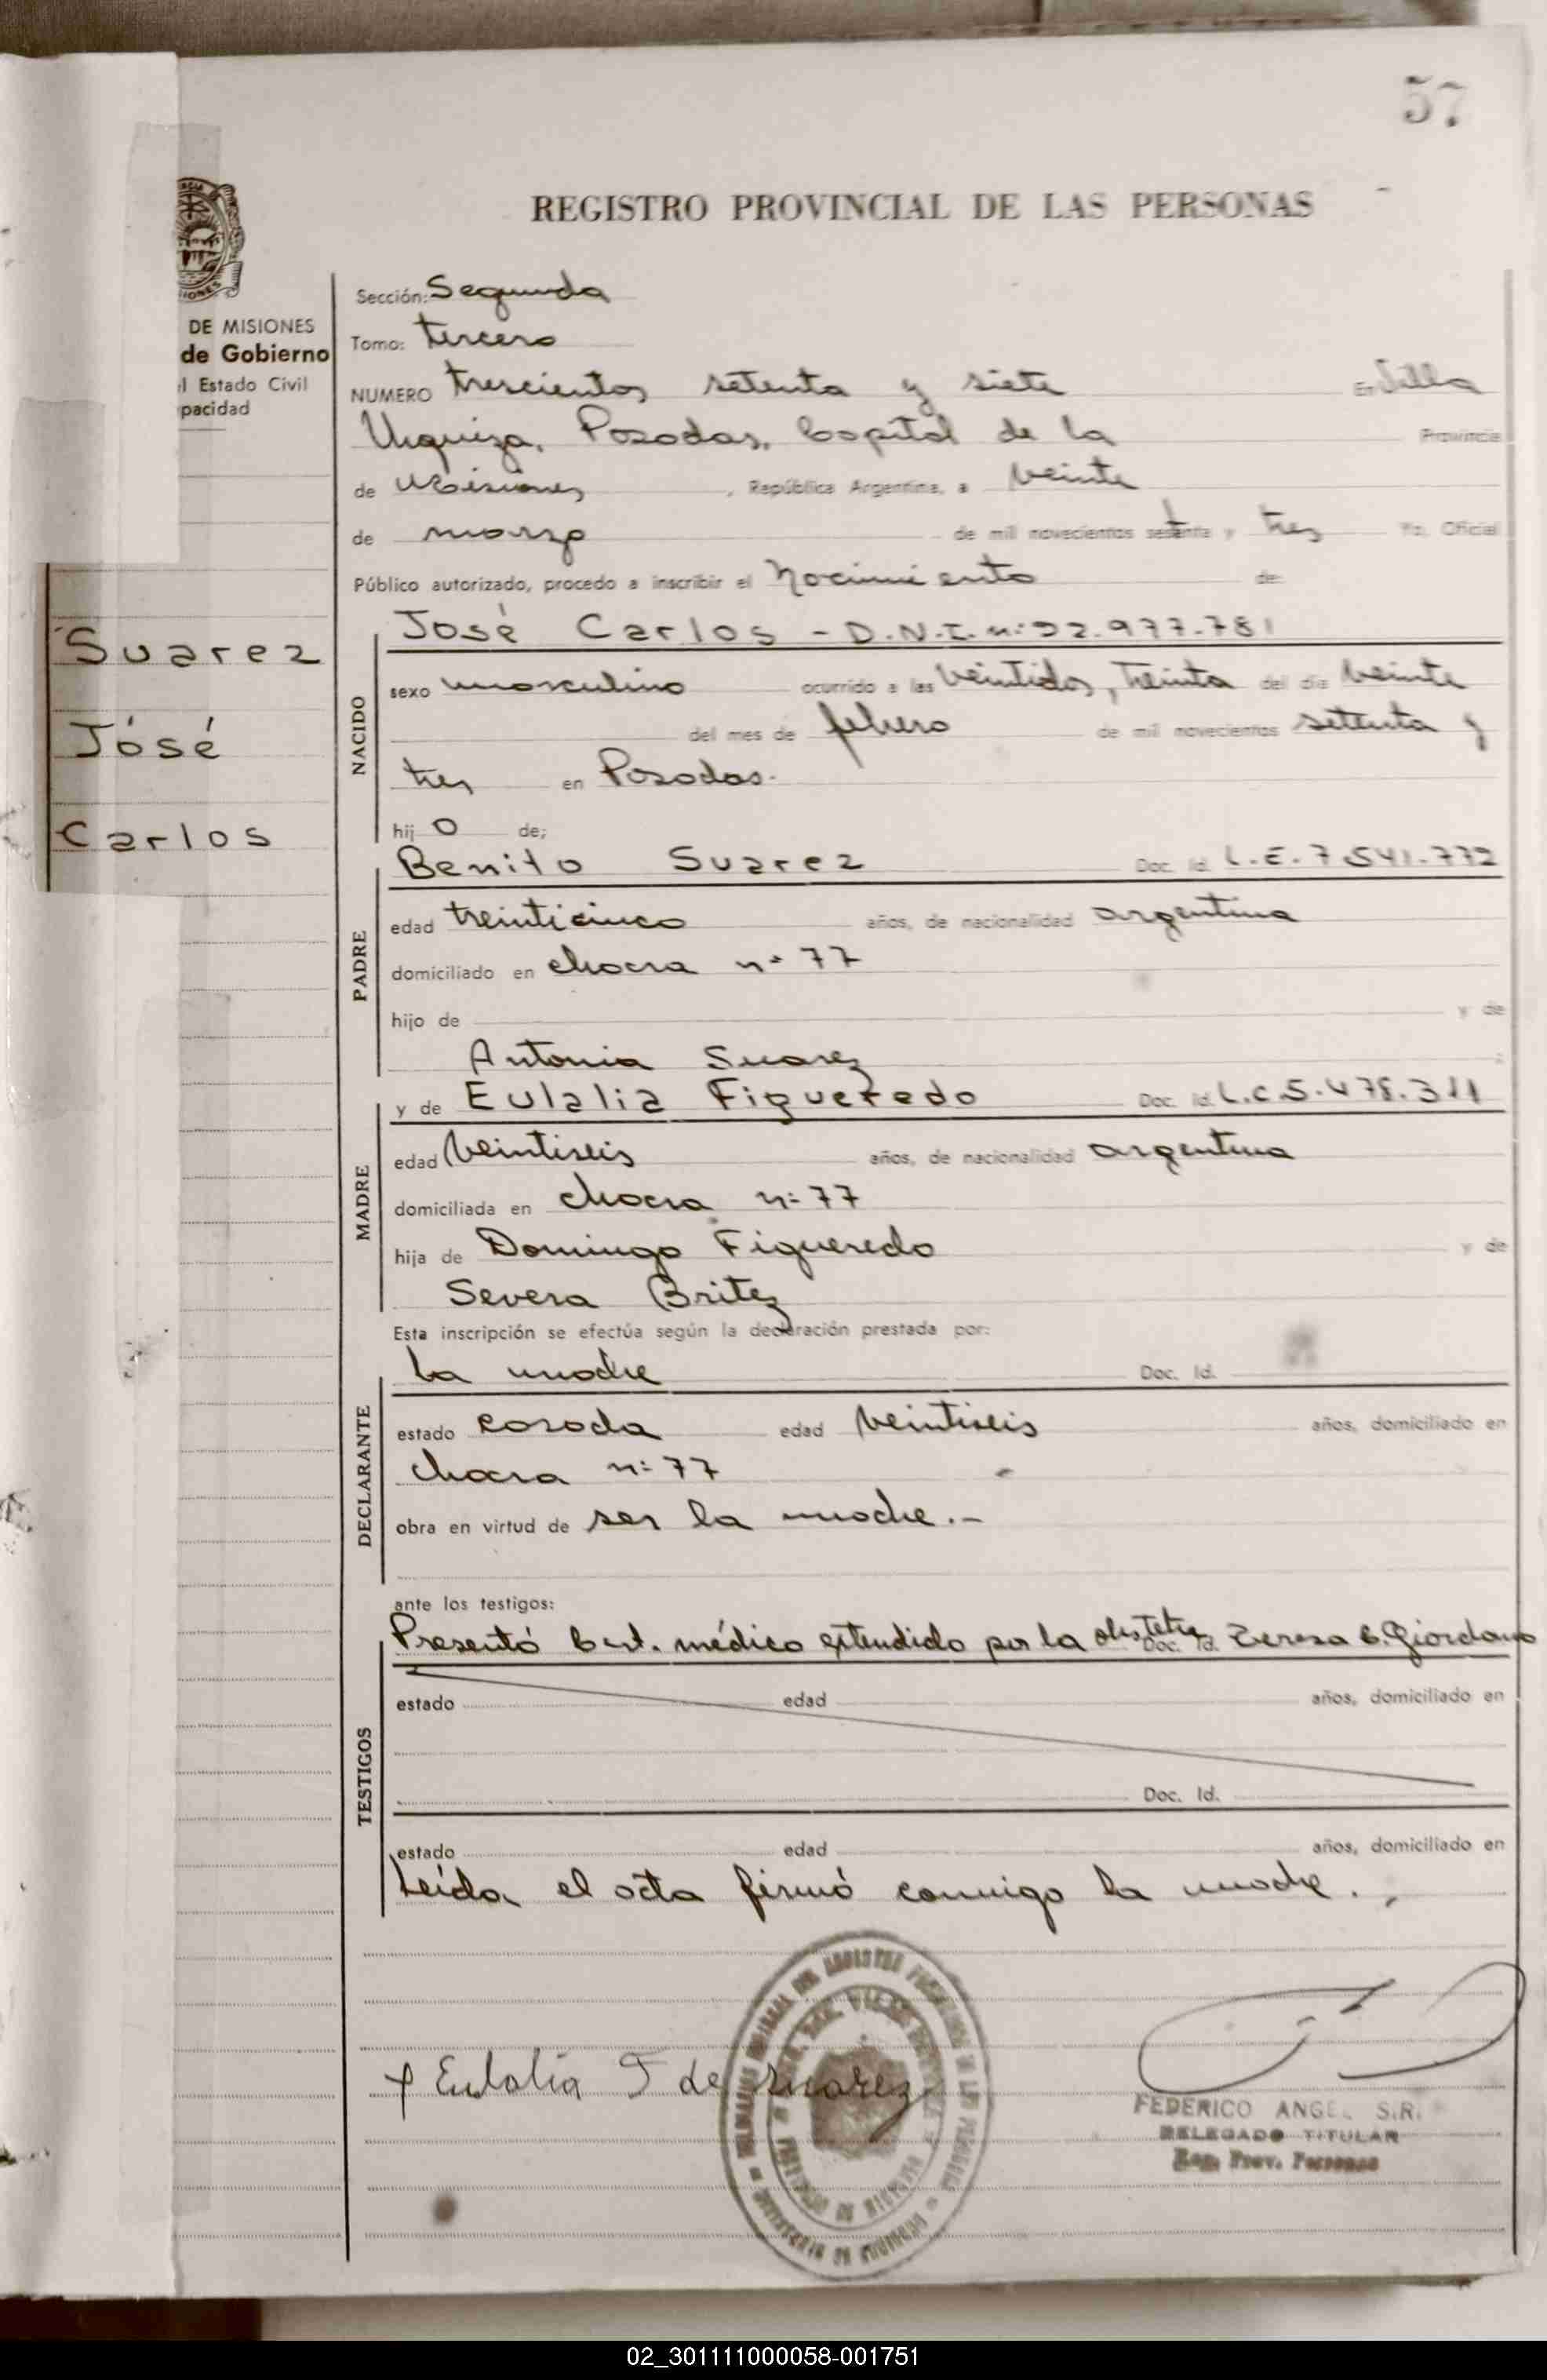 57
REGISTRO PROVINCIAL DE LAS PERSONAS
DE MISIONES
de Gobierno
l Estado Civil
pacidad
Sección: Segunda
Tomo: tercero
NUMERO trescientos setenta y siete En Villa
Urquiza, Posadas, Capital de la Provincia
de Misiones, República Argentina, a veinte
de marzo de mil novecientos setenta y tres Yo, Oficial
Público autorizado, procedo a inscribir el Nacimiento de:
Suarez
José
Carlos
NACIDO
José Carlos - D.N.I. n: 22.977.781
sexo masculino ocurrido a las veintidos, treinta del día veinte
del mes de febrero de mil novecientos setenta y
tres en Posadas.
hij o de;
PADRE
Benito Suarez Doc. Id. L.E. 7.541.772
edad treinticinco años, de nacionalidad argentina
domiciliado en chacra n° 77
hijo de y de
Antonia Suarez
MADRE
y de Eulalia Figueredo Doc. Id. L.C. 5.478.311
edad veintiseis años, de nacionalidad argentina
domiciliada en chacra n: 77
hija de Domingo Figueredo y de
Severa Britez
Esta inscripción se efectúa según la declaración prestada por:
DECLARANTE
la madre Doc. Id.
estado casada edad veintiseis años, domiciliado en
chacra n: 77
obra en virtud de ser la madre.-
ante los testigos:
TESTIGOS
Presentó Cert. médico extendido por la obstetra Doc. Id. Teresa C. Giordano
estado edad años, domiciliado en
Doc. Id.
estado edad años, domiciliado en
Leída el acta firmó conmigo la madre.
Eulalia F de Suarez
FEDERICO ANGEL
DELEGADO TITULAR
Reg. Prov. Personas
02_301111000058-001751